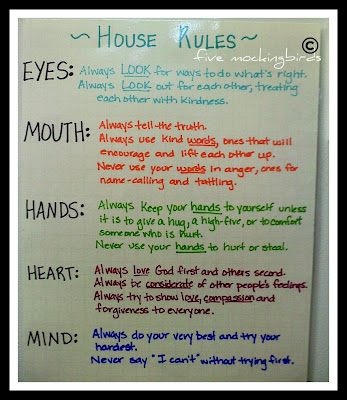 ~ HOUSE RULES ~
©
five mockingbirds
EYES:
Always LOOK for ways to do what's right.
Always LOOK out for each other, treating
each other with kindness.
MOUTH:
Always tell the truth.
Always use kind words, ones that will
encourage and lift each other up.
Never use your words in anger, ones for
name-calling and tattling.
HANDS:
Always keep your hands to yourself unless
it is to give a hug, a high-five, or to comfort
someone who is hurt.
Never use your hands to hurt or steal.
HEART:
Always love God first and others second.
Always be considerate of other people's feelings.
Always try to show love, compassion and
forgiveness to everyone.
MIND:
Always do your very best and try your
hardest.
Never say "I can't" without trying first.